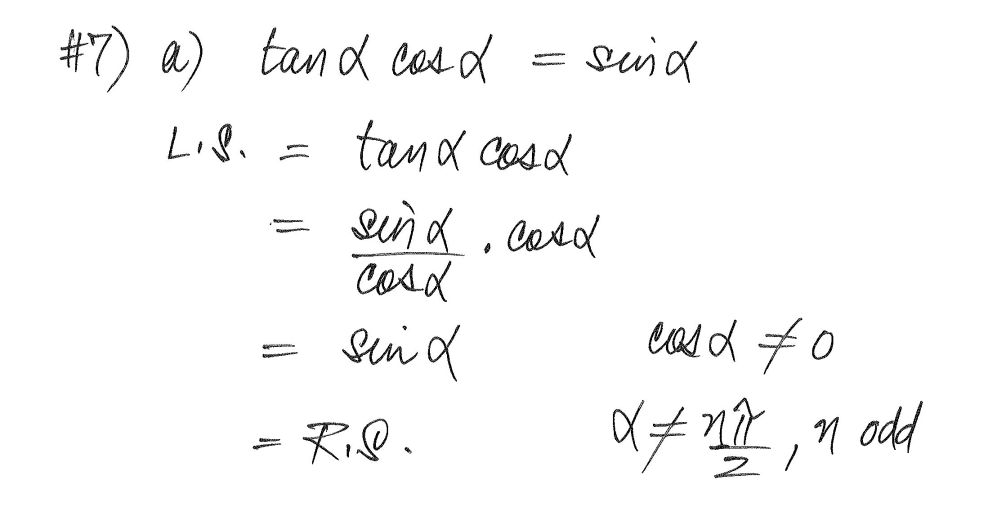 #7) a) tanα cosα = sinα
L.S. = tanα cosα
= sinα/cosα · cosα
= sinα cosα ≠ 0
= R.S. α ≠ nπ/2, n odd